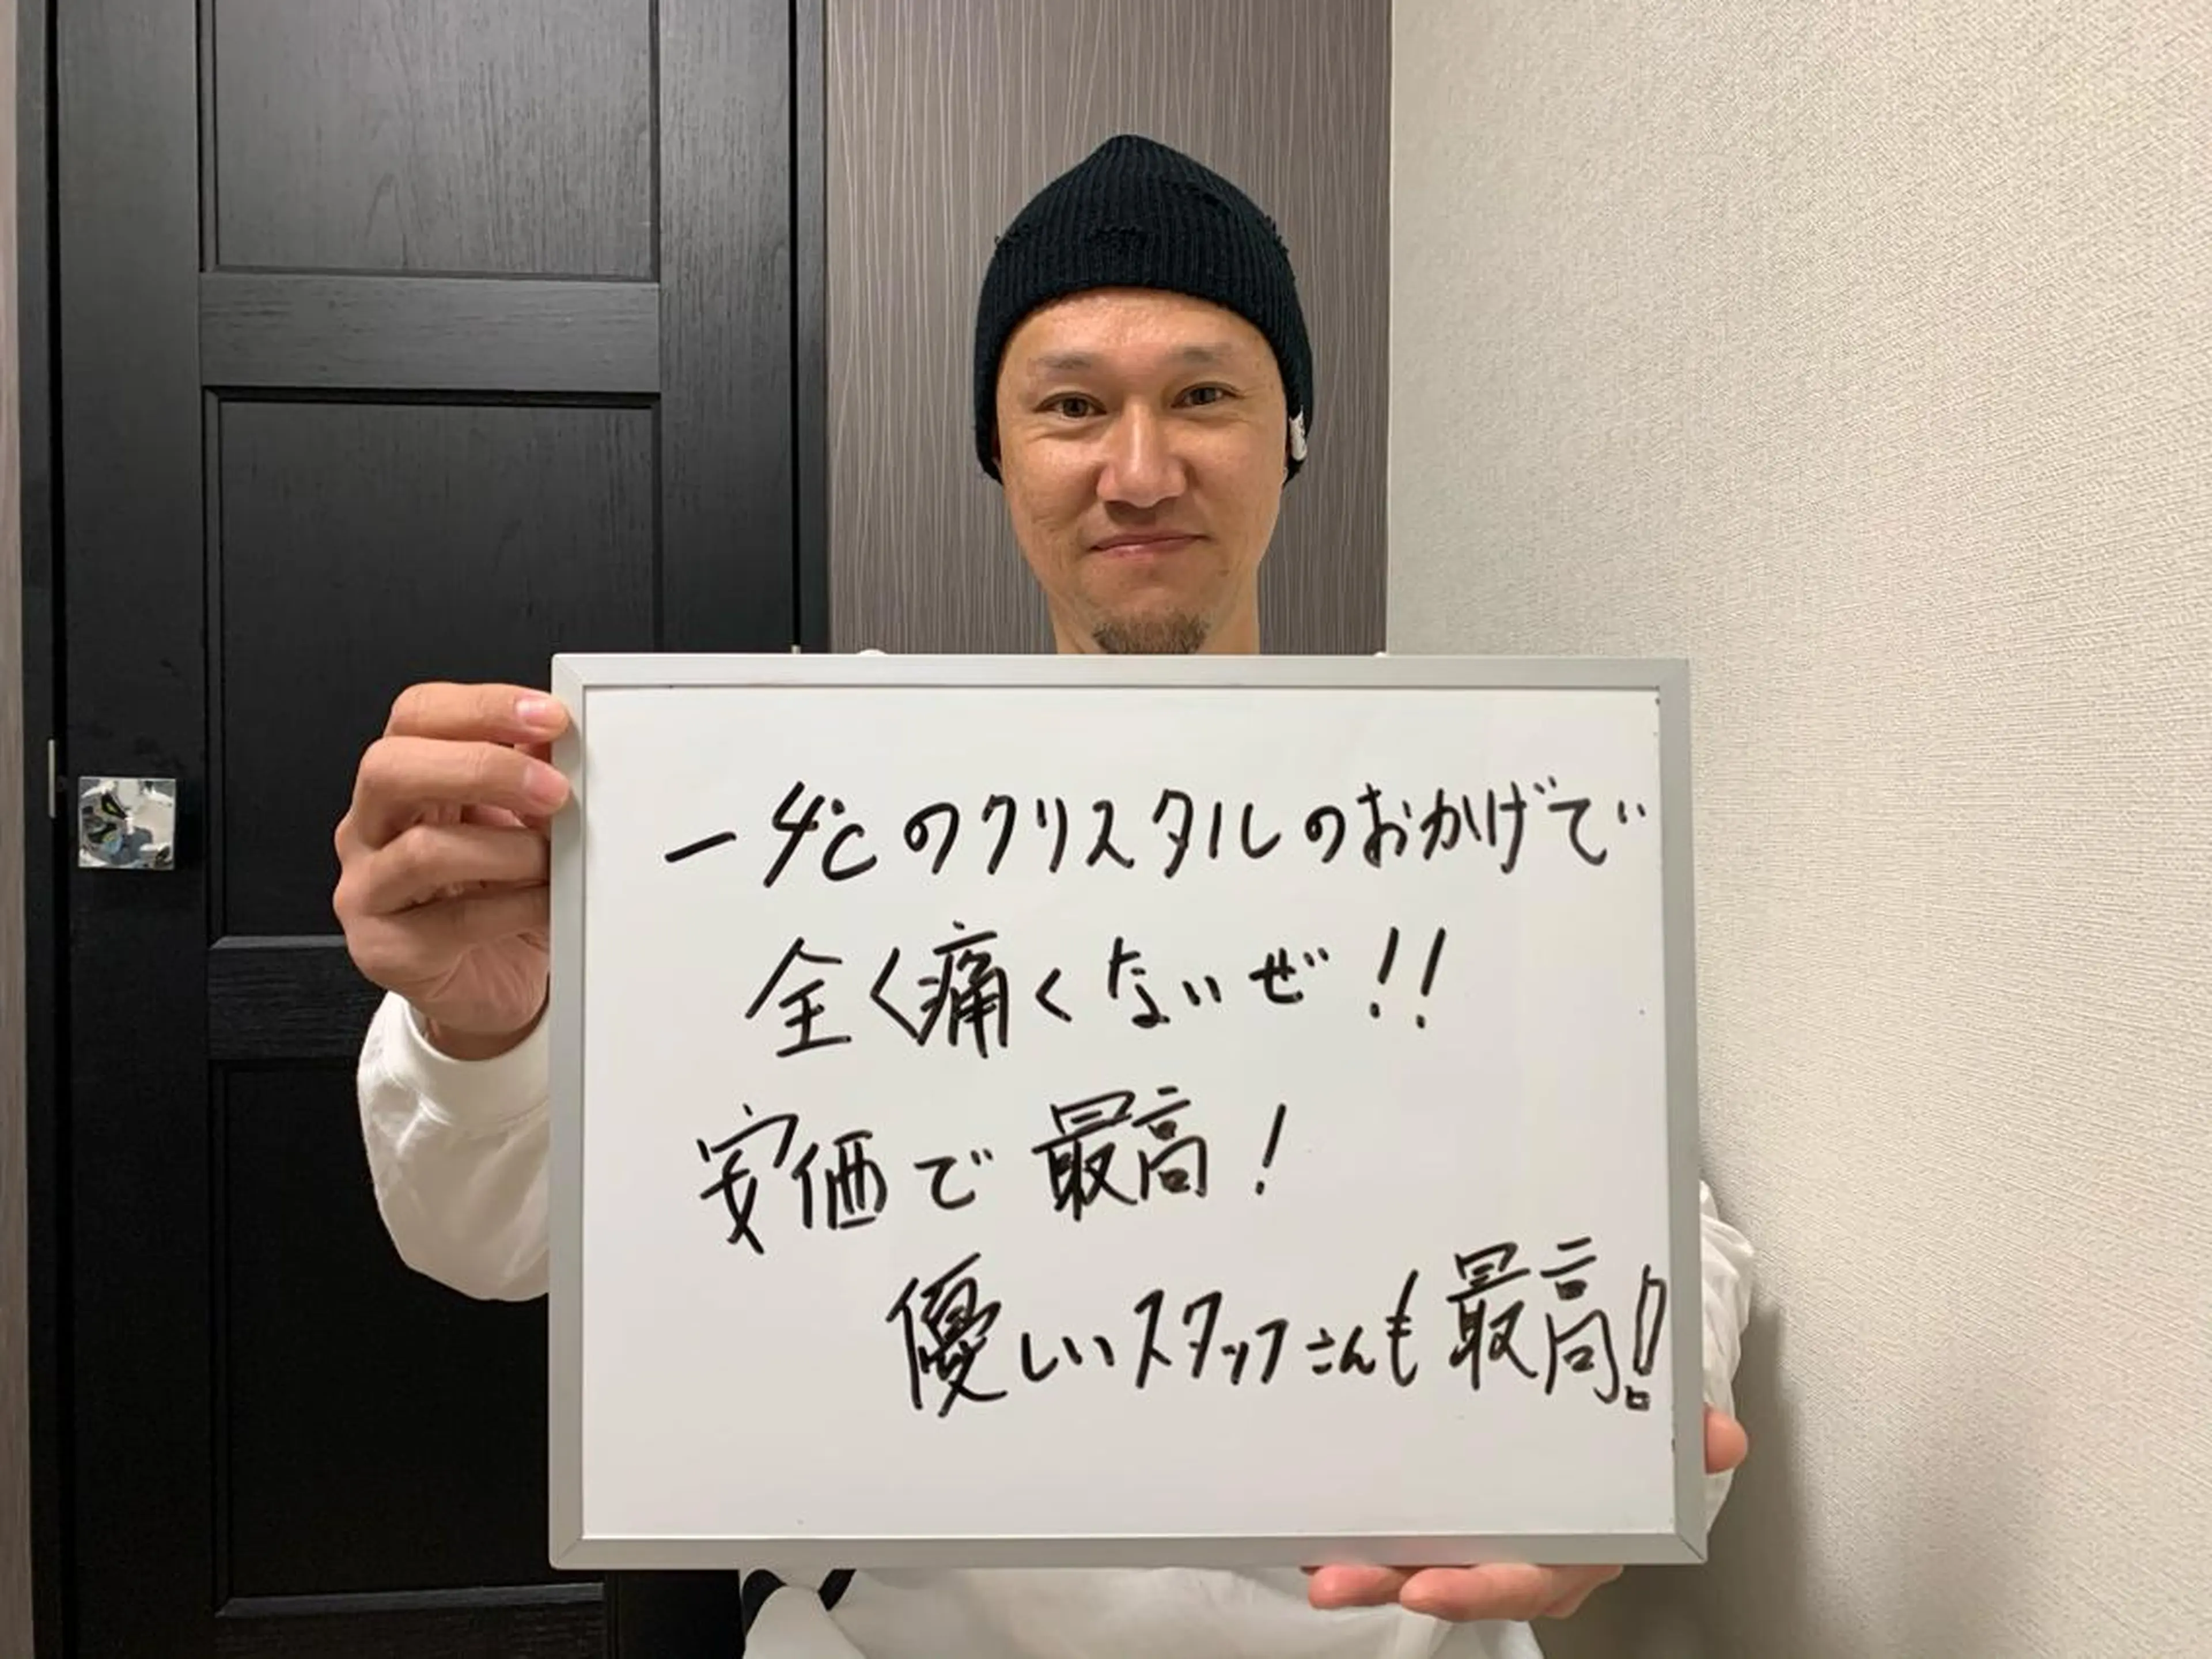 -4℃のクリスタルのおかげで
全く痛くないぜ!!
安価で最高!
優しいスタッフさんも最高!